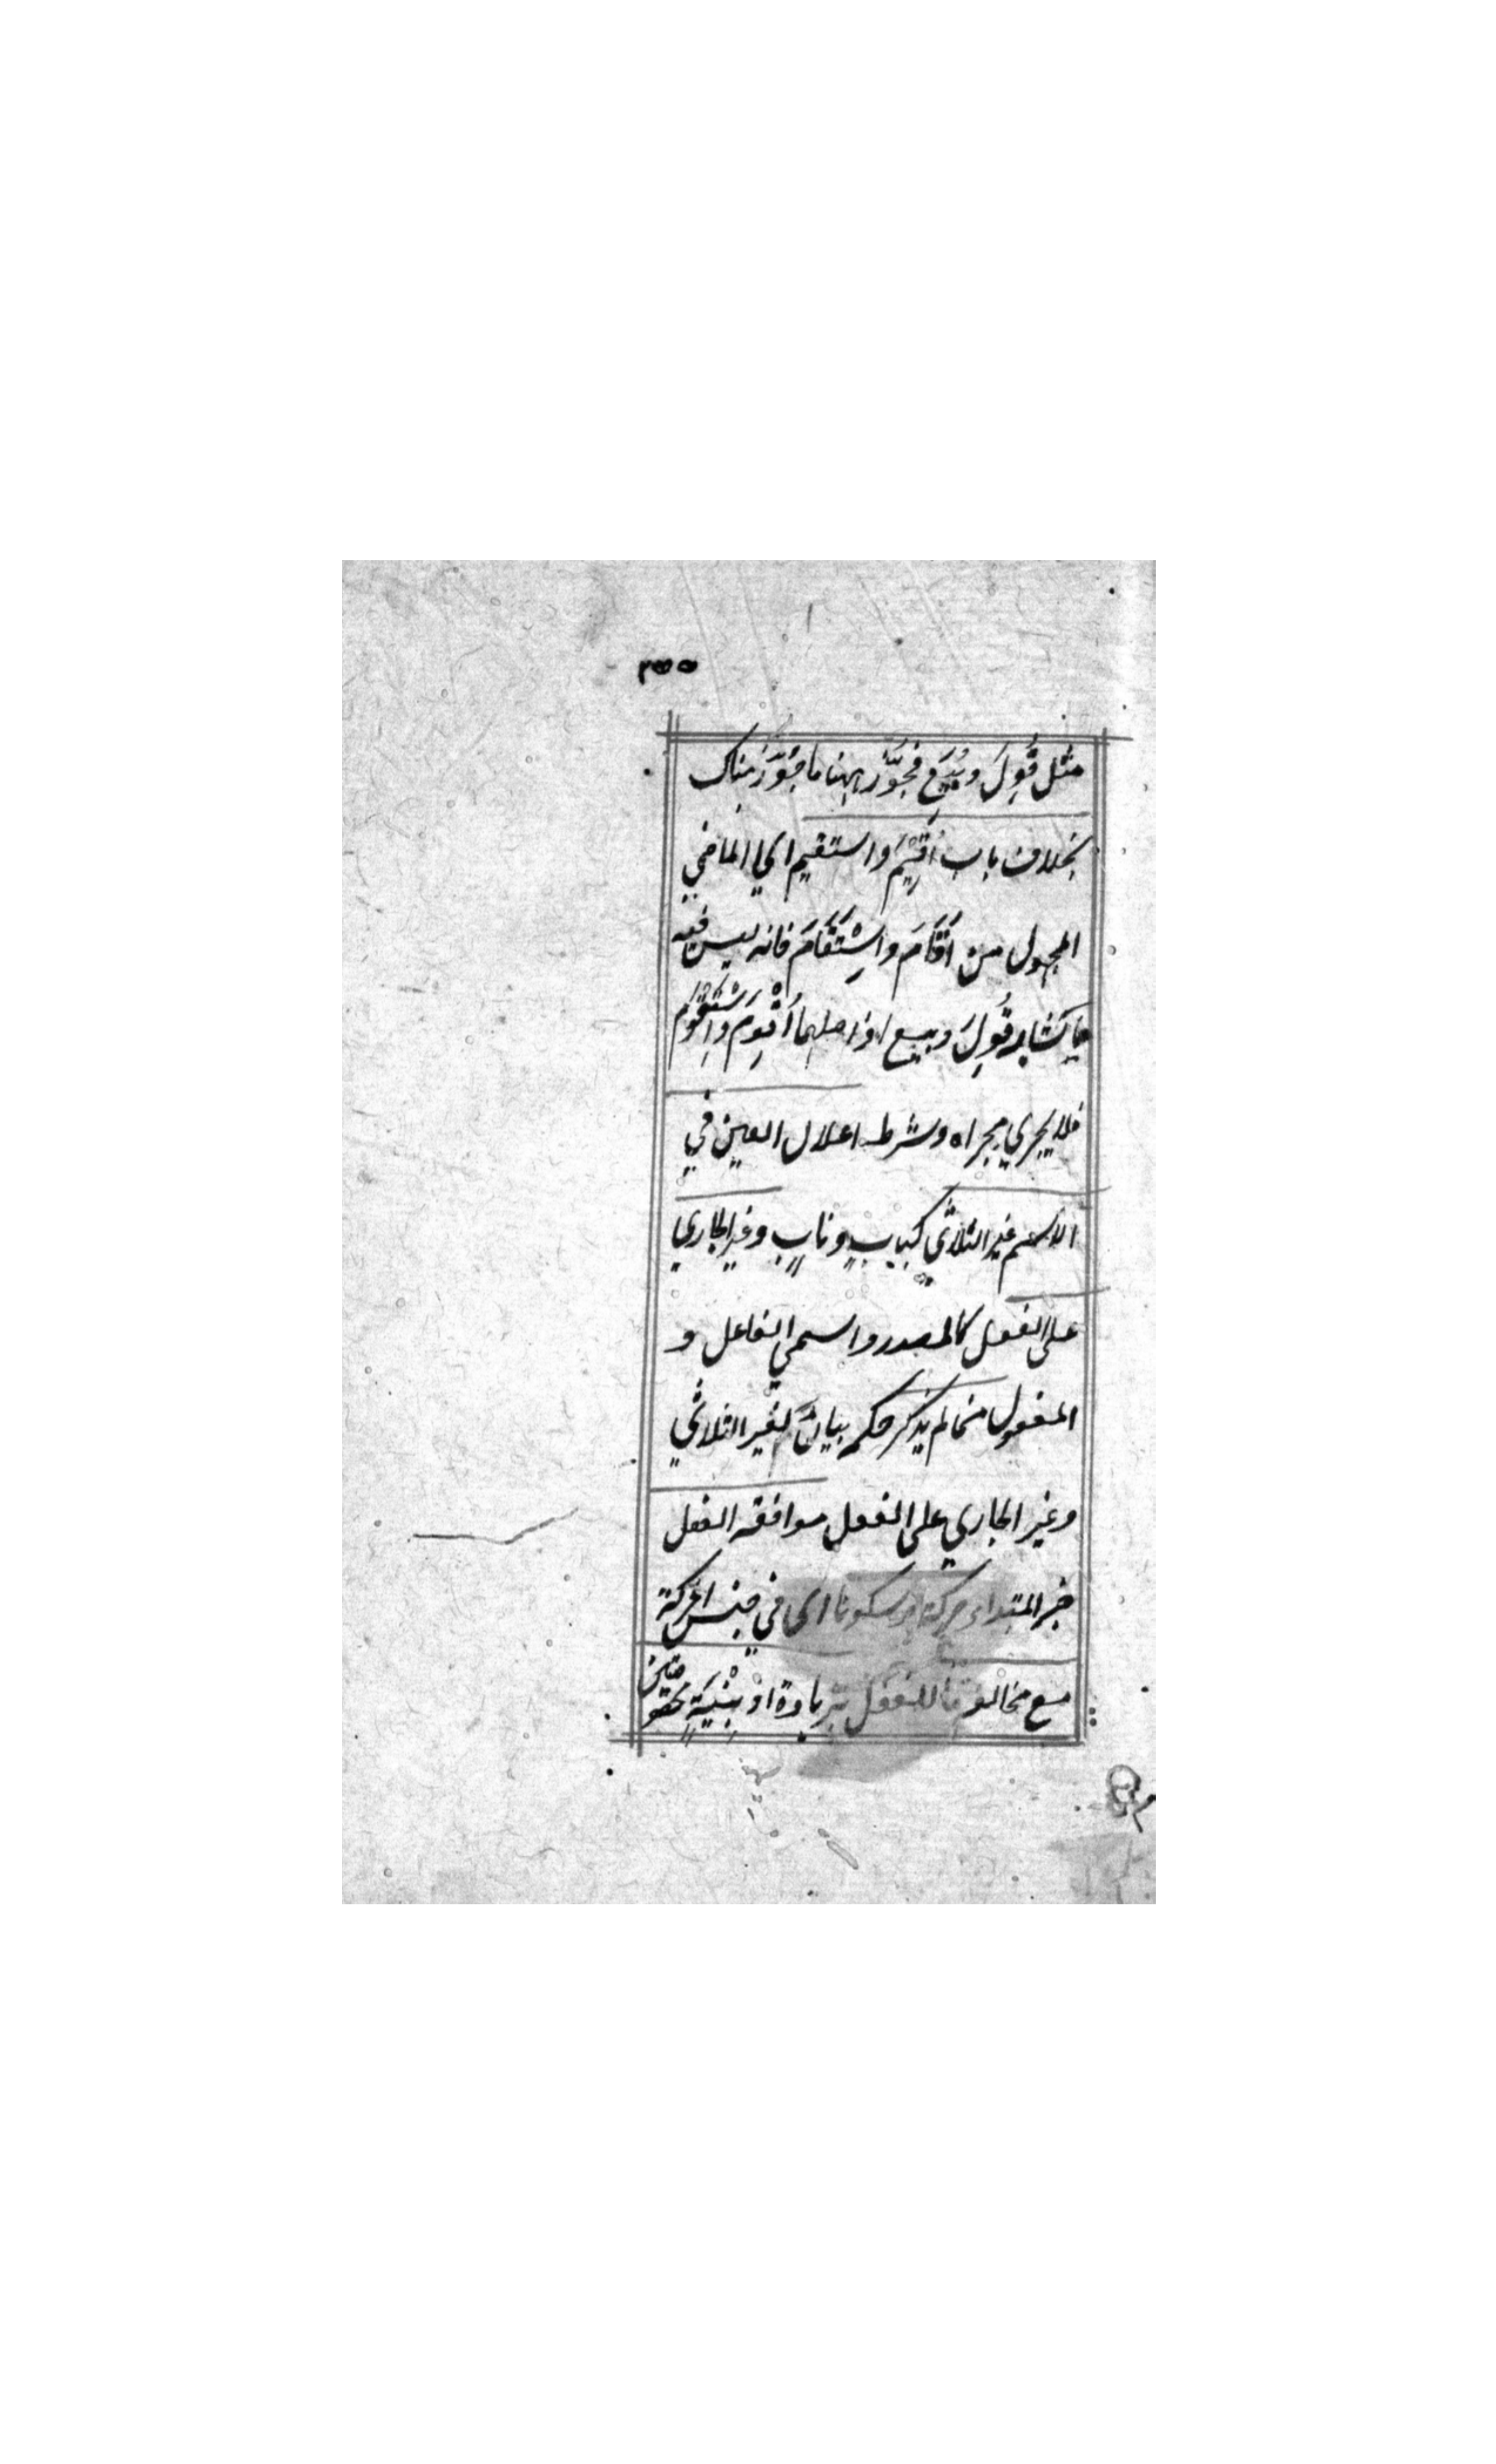 ٣٥٥
مثل قُوِلَ وبُيِعَ فجَوَّز ههنا ما جُوِّزَ هناك
بخلاف باب أُقْيِمَ واستقيم اي الماضي
المجهول من أَقَامَ واِسْتَقَامَ فانه ليس فيه
ما يشابه قُوِلَ وبيع اذا صلهما أُقْوِمَ واِسْتُقْوِمَ
فلا يجري مجراه وشرط اعلال العين في
الاسم غير الثلاثي كباب وناب وغير الجاري
على الفعل كالمصدر واسمي الفاعل و
المفعول مما لم يذكر حكمه بيان لغير الثلاثي
وغير الجاري على الفعل موافقة الفعل
خبر المبتداء حركة وسكونا اي في جنس الحركة
مع مخالفة للفعل بزيادة او بِنْيَةٍ مخصوصتين